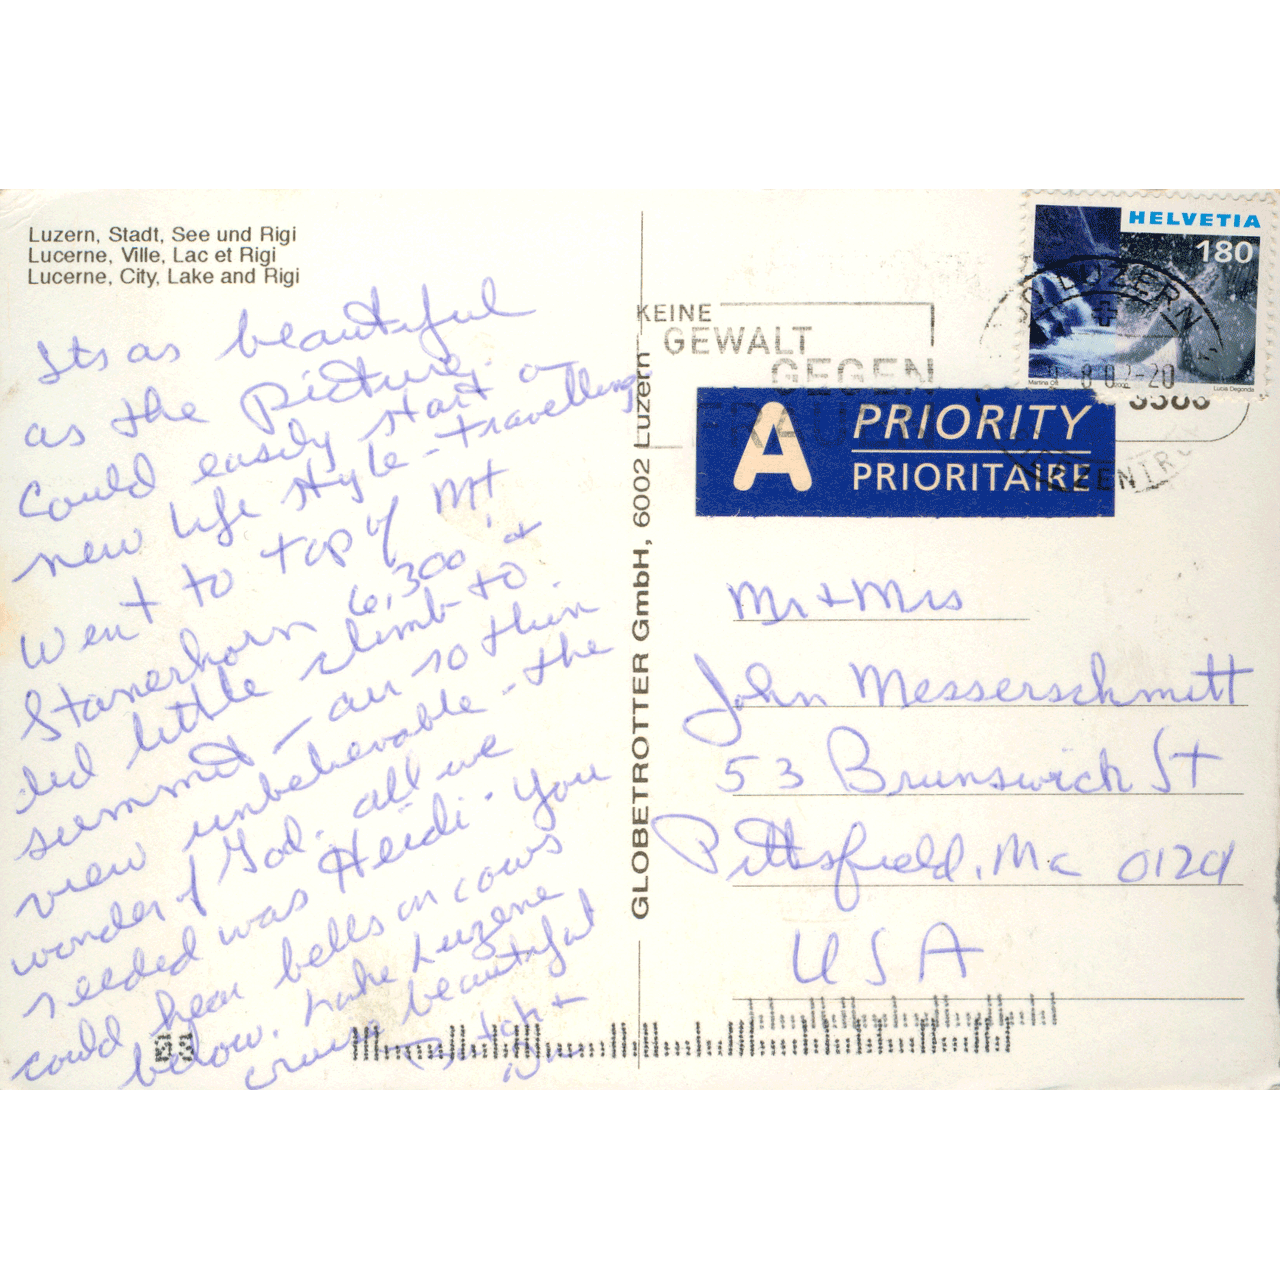 Luzern, Stadt, See und Rigi
Lucerne, Ville, Lac et Rigi
Lucerne, City, Lake and Rigi
Its as beautiful
as the picture.
Could easily start a
new life style - travelling
Went to top of Mt
Stanerhorn 6,300' +
did little climb to
summit - air so thin.
view unbelievable - the
wonder of God. all we
needed was Heidi. You
could hear bells on cows
below. Lake Luzerne
cruise beautiful
GLOBETROTTER GmbH, 6002 Luzern
KEINE
GEWALT
GEGEN
FRAUEN
HELVETIA
180
Martina Ott
2000
Lucia Degonda
LUZERN
A PRIORITY
PRIORITAIRE
Mr + Mrs
John Messerschmitt
53 Brunswick St
Pittsfield, Ma 01201
USA